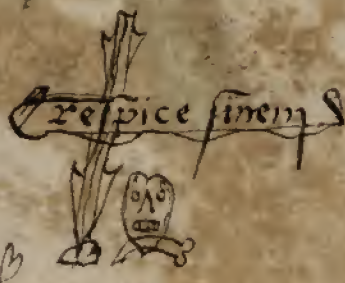 respice finem